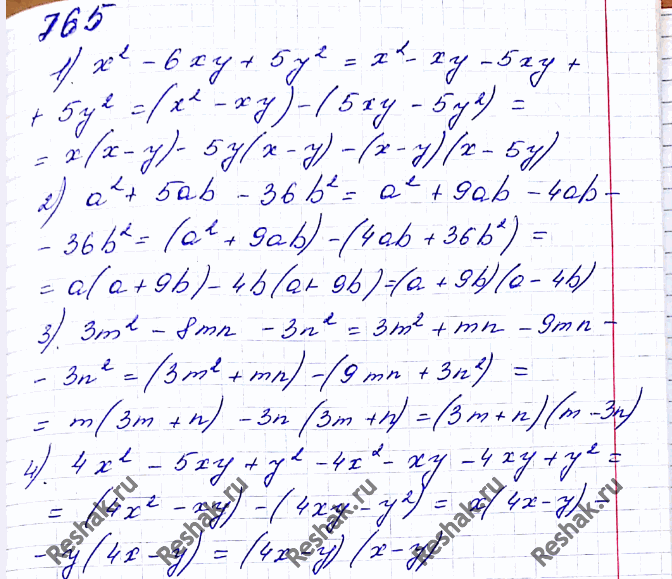 765
1). x² - 6xy + 5y² = x² - xy - 5xy +
+ 5y² = (x² - xy) - (5xy - 5y²) =
= x(x - y) - 5y(x - y) - (x - y)(x - 5y)
2) a² + 5ab - 36b² = a² + 9ab - 4ab -
- 36b² = (a² + 9ab) - (4ab + 36b²) =
= a(a + 9b) - 4b(a + 9b) = (a + 9b)(a - 4b)
3). 3m² - 8mn - 3n² = 3m² + mn - 9mn -
- 3n² = (3m² + mn) - (9mn + 3n²) =
= m(3m + n) - 3n(3m + n) = (3m + n)(m - 3n)
4). 4x² - 5xy + y² - 4x² - xy - 4xy + y² =
= (4x² - xy) - (4xy - y²) = x(4x - y) -
- y(4x - y) = (4x - y)(x - y)
Reshak.ru
Reshak.ru
Reshak.ru
Reshak.ru